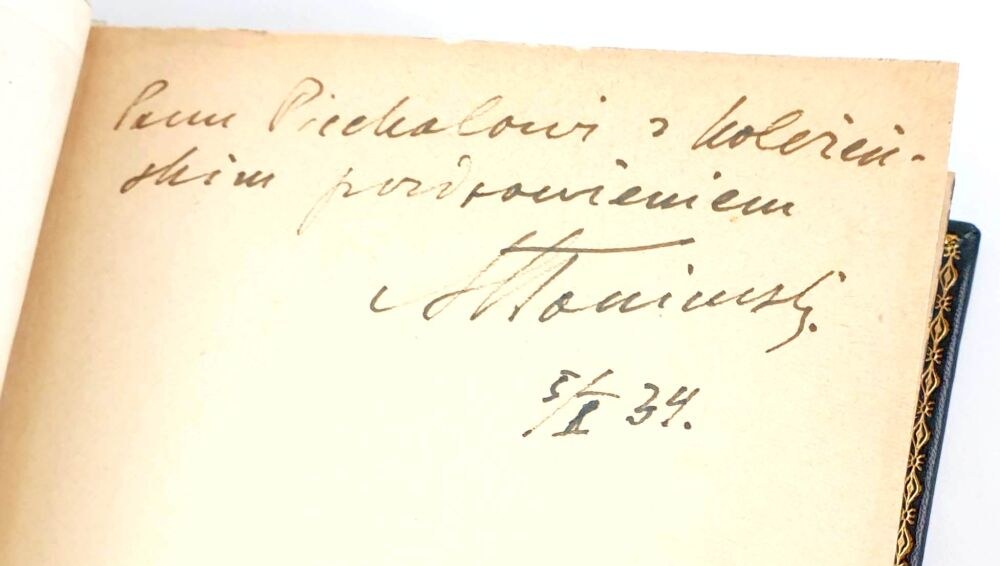 Panu Piechalowi z koleżeń-
skim pozdrowieniem
ASłonimski.
5/X 34.